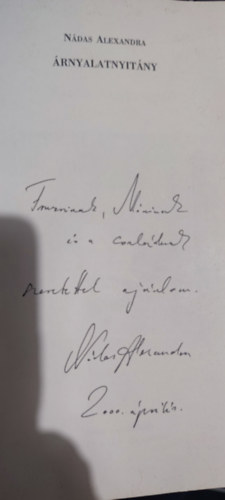 NÁDAS ALEXANDRA
ÁRNYALATNYITÁNY
Nininek
és a családnak
szeretettel ajánlom.
Nádas Alexandra
2000. április.